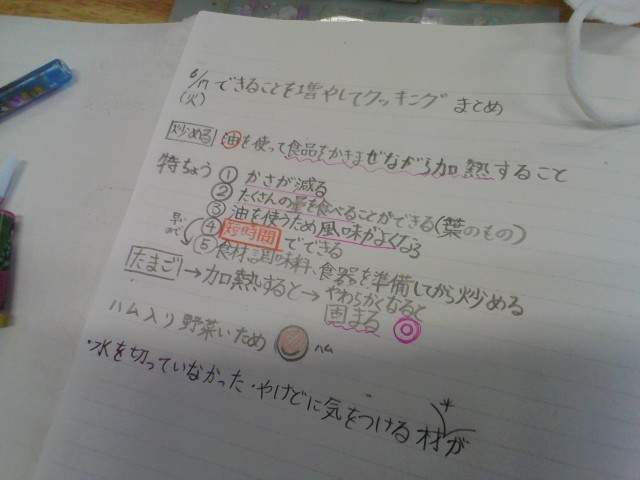 6/17 できることを増やしてクッキング まとめ
(火)
炒める 油を使って食品をかきまぜながら加熱すること
特ちょう ① かさが減る
② たくさんの量を食べることができる(葉のもの)
③ 油を使うため風味がよくなる
早いので ④ 短時間でできる
⑤ 食材、調味料、食器を準備してから炒める
たまご→加熱すると→やわらかくなると
固まる ◎
ハム入り野菜いため ハム
・水を切っていなかった・やけどに気をつける 材が